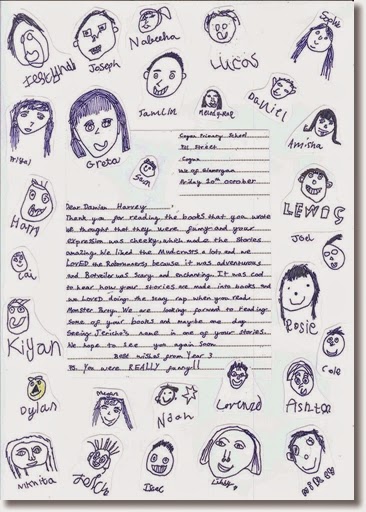 Sophie
Nabeeha
Joseph
Lucas
Jamlin
Daniel
Amisha
Greta
Sam
Harry
LEWIS
Joel
Cai
Rosie
Kiyan
Cole
Dylan
Megan
Noah
Lorenzo
Ashton
Josh
Isaac
Libby
Cogan Primary School
Pill Street
Cogan
Vale of Glamorgan
Friday 10th October
Dear Damian Harvey,
Thank you for reading the books that you wrote
we thought that they were funny and your
expression was cheeky which made the stories
amazing. We liked the Mudcrusts a lot, and we
LOVED the Roborunners because it was adventurous
and Rotweiler was scary and enchanting. It was cool
to hear how your stories are made into books and
we LOVED doing the scary rap when you read
Monster Party. We are looking forward to reading
some of your books and maybe one day
seeing Jericho's name in one of your stories.
We hope to see you again soon
Best wishes from Year 3
P.S. You were REALLY funny!!